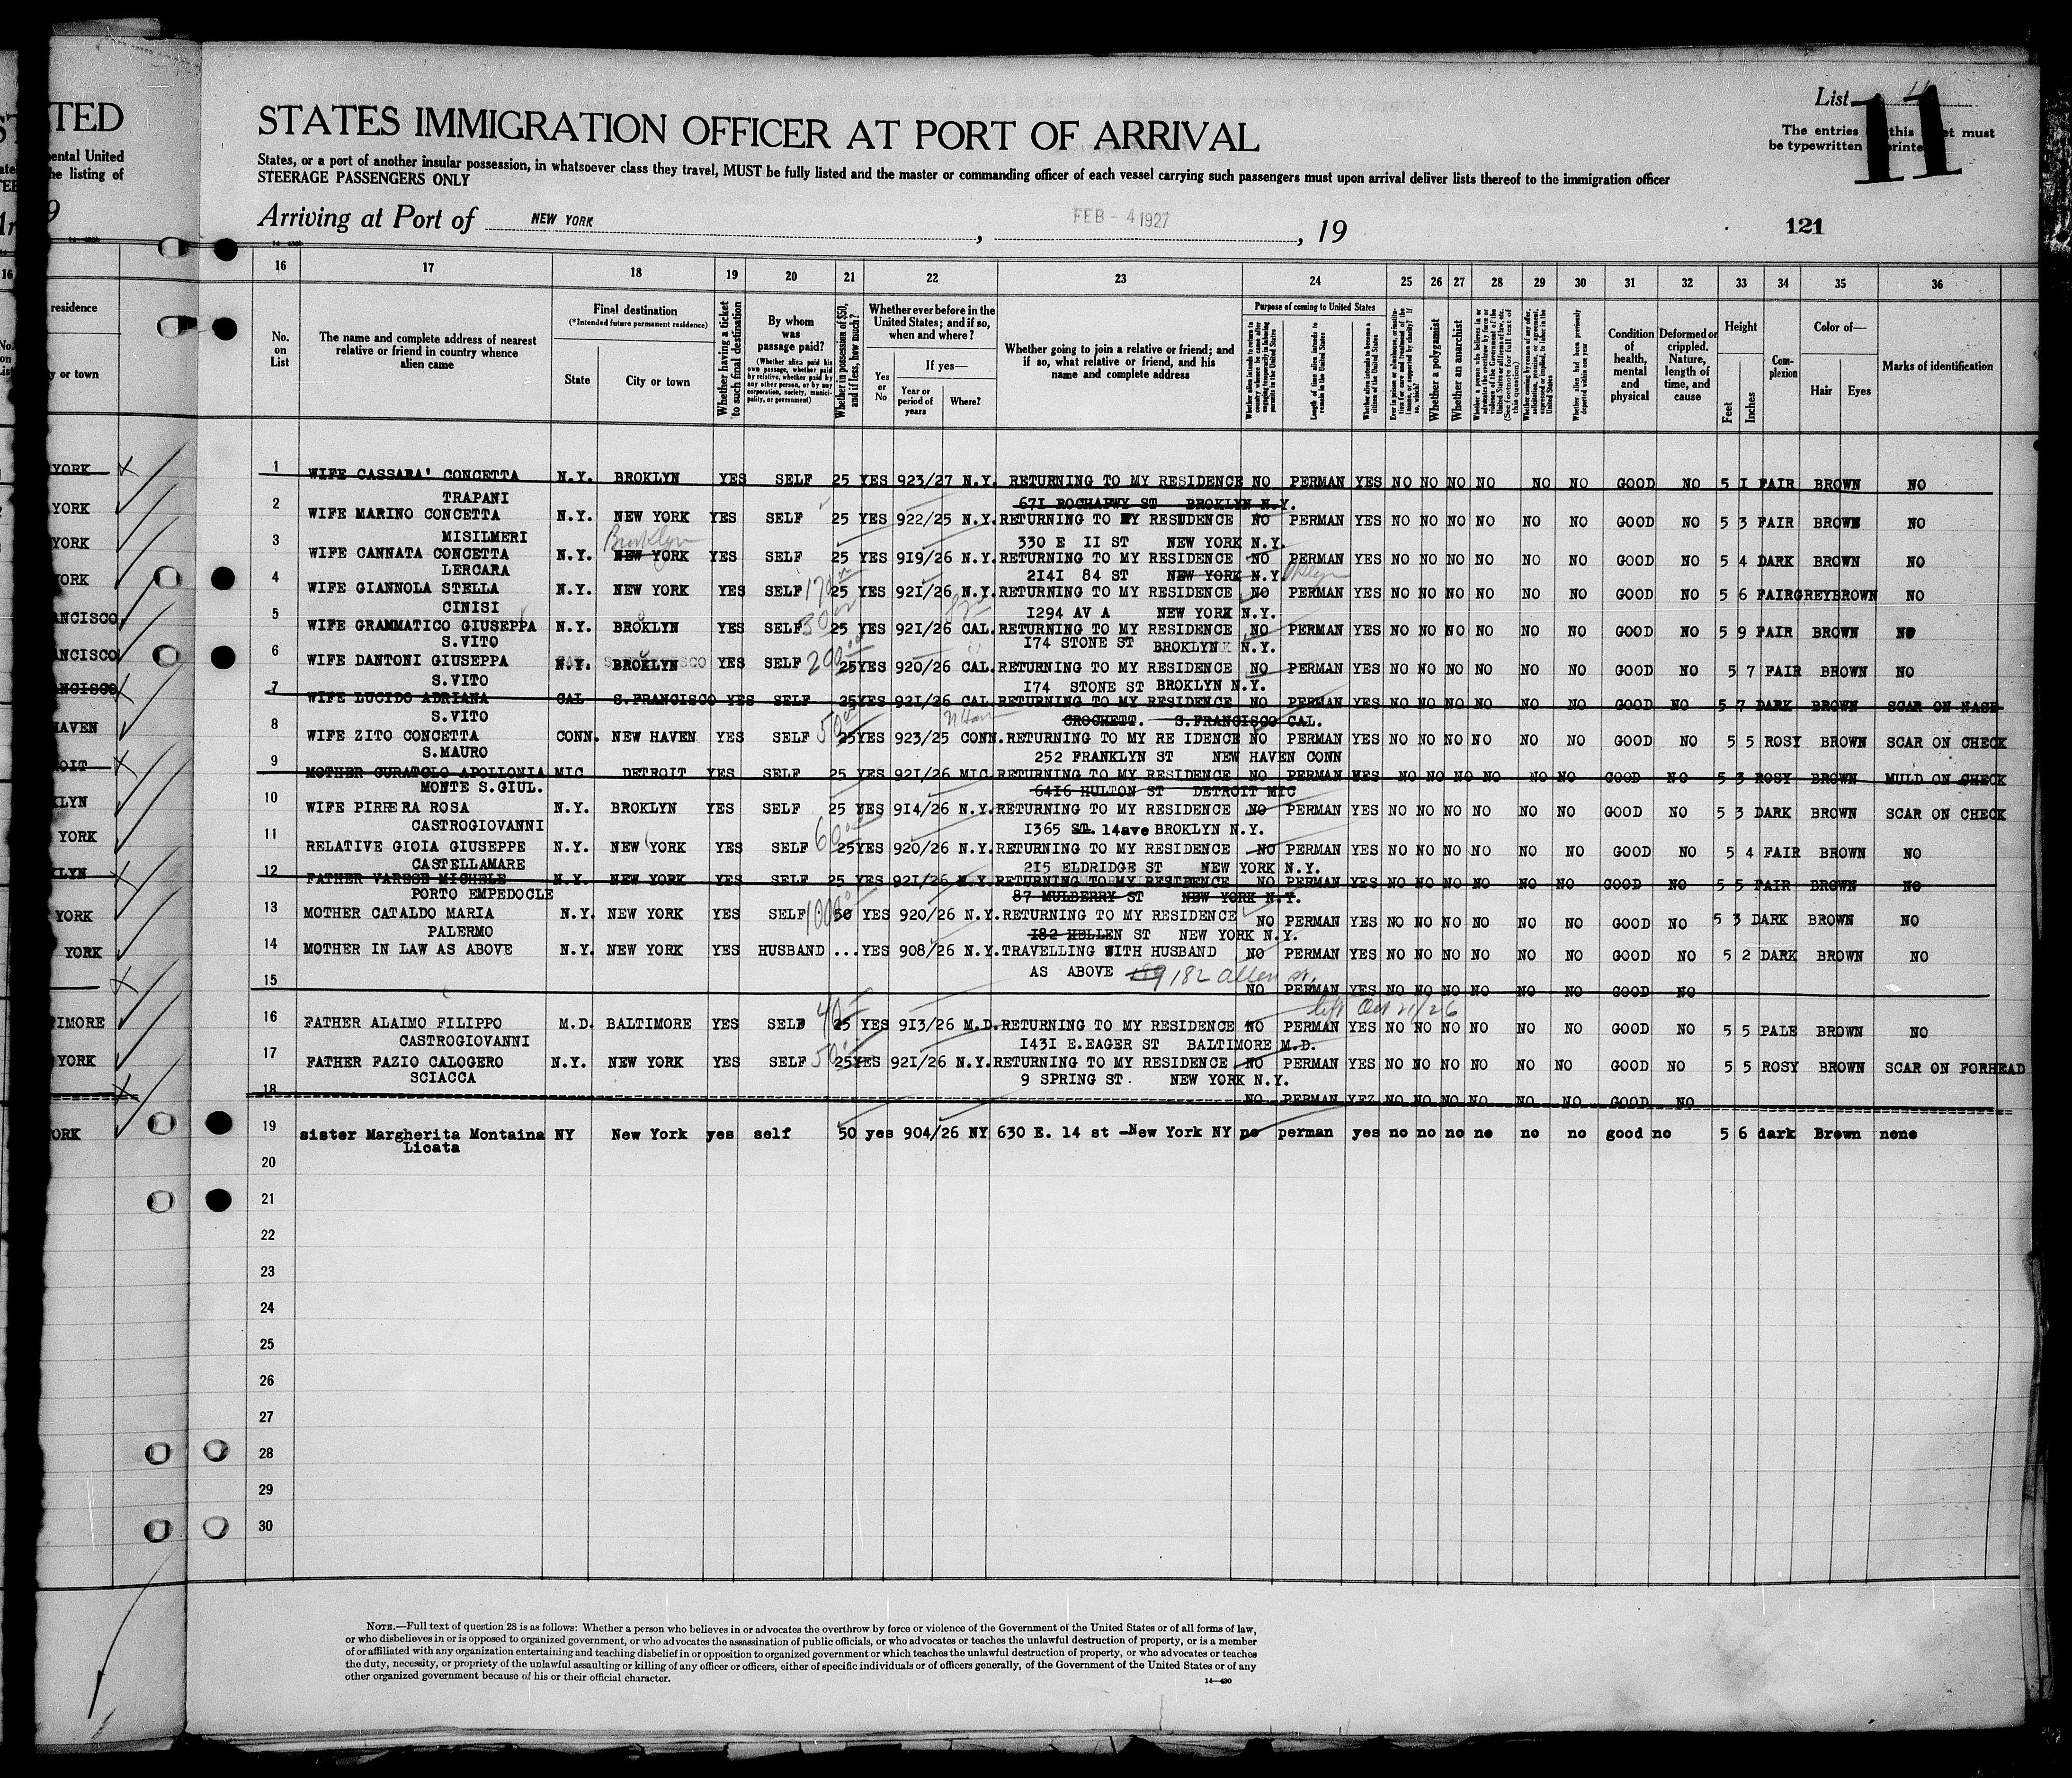 TED
STATES IMMIGRATION OFFICER AT PORT OF ARRIVAL
List 11
The entries this must
be typewritten
mental United
he listing of
States, or a port of another insular possession, in whatsoever class they travel, MUST be fully listed and the master or commanding officer of each vessel carrying such passengers must upon arrival deliver lists thereof to the immigration officer
STEERAGE PASSENGERS ONLY
Arriving at Port of NEW YORK , FEB - 4 1927 , 19
121
16 17 18 19 20 21 22 23 24 25 26 27 28 29 30 31 32 33 34 35 36
No. on List
The name and complete address of nearest relative or friend in country whence alien came
Final destination
(*Intended future permanent residence)
State
City or town
Whether having a ticket to such final destination
By whom was passage paid?
(Whether alien paid his own passage, whether paid by relative, whether paid by any other person, or by any corporation, society, municipality, or government)
Whether in possession of $50, and if less, how much?
Whether ever before in the United States; and if so, when and where?
Yes or No
If yes—
Year or period of years
Where?
Whether going to join a relative or friend; and if so, what relative or friend, and his name and complete address
Purpose of coming to United States
Length of time alien intends to remain in the United States
Whether alien intends to become a citizen of the United States
Whether a polygamist
Whether an anarchist
Condition of health, mental and physical
Deformed or crippled. Nature, length of time, and cause
Height
Feet
Inches
Complexion
Color of—
Hair
Eyes
Marks of identification
1 WIFE CASSARA' CONCETTA N.Y. BROKLYN YES SELF 25 YES 923/27 N.Y. RETURNING TO MY RESIDENCE NO PERMAN YES NO NO NO NO NO NO GOOD NO 5 1 FAIR BROWN NO
TRAPANI 671 ROCHAPWY ST BROKLYN N.Y.
2 WIFE MARINO CONCETTA N.Y. NEW YORK YES SELF 25 YES 922/25 N.Y. RETURNING TO MY RESIDENCE NO PERMAN YES NO NO NO NO NO NO GOOD NO 5 3 FAIR BROWN NO
MISILMERI 330 E II ST NEW YORK N.Y.
Brooklyn
3 WIFE CANNATA CONCETTA N.Y. NEW YORK YES SELF 25 YES 919/26 N.Y. RETURNING TO MY RESIDENCE NO PERMAN YES NO NO NO NO NO NO GOOD NO 5 4 DARK BROWN NO
LERCARA 2141 84 ST NEW YORK N.Y. Bklyn
4 WIFE GIANNOLA STELLA N.Y. NEW YORK YES SELF 25 YES 921/26 N.Y. RETURNING TO MY RESIDENCE NO PERMAN YES NO NO NO NO NO NO GOOD NO 5 6 FAIR GREY BROWN NO
CINISI 1294 AV A NEW YORK N.Y.
5 WIFE GRAMMATICO GIUSEPPA N.Y. BROKLYN YES SELF 25 YES 921/26 CAL. RETURNING TO MY RESIDENCE NO PERMAN YES NO NO NO NO NO NO GOOD NO 5 9 FAIR BROWN NO
S.VITO 174 STONE ST BROKLYN N.Y.
6 WIFE DANTONI GIUSEPPA N.Y. BROKLYN YES SELF 200 25 YES 920/26 CAL. RETURNING TO MY RESIDENCE NO PERMAN YES NO NO NO NO NO NO GOOD NO 5 7 FAIR BROWN NO
S.VITO 174 STONE ST BROKLYN N.Y.
7 WIFE LUCIDO ADRIANA CAL S.FRANCISCO YES SELF 25 YES 921/26 CAL. RETURNING TO MY RESIDENCE NO PERMAN YES NO NO NO NO NO NO GOOD NO 5 7 DARK BROWN SCAR ON NASE
S.VITO CROCHETT. S.FRANCISCO CAL.
8 WIFE ZITO CONCETTA CONN. NEW HAVEN YES SELF 50 25 YES 923/25 CONN. RETURNING TO MY RE IDENCE NO PERMAN YES NO NO NO NO NO NO GOOD NO 5 5 ROSY BROWN SCAR ON CHECK
S.MAURO 252 FRANKLYN ST NEW HAVEN CONN
9 MOTHER CURATOLO APOLLONIA MIC DETROIT YES SELF 25 YES 921/26 MIC. RETURNING TO MY RESIDENCE NO PERMAN YES NO NO NO NO NO NO GOOD NO 5 3 ROSY BROWN MULD ON CHECK
MONTE S.GIUL. 6416 HULTON ST DETROIT MIC
10 WIFE PIRRERA ROSA N.Y. BROKLYN YES SELF 25 YES 914/26 N.Y. RETURNING TO MY RESIDENCE NO PERMAN YES NO NO NO NO NO NO GOOD NO 5 3 DARK BROWN SCAR ON CHECK
CASTROGIOVANNI 1365 ST. 14ave BROKLYN N.Y.
11 RELATIVE GIOIA GIUSEPPE N.Y. NEW YORK YES SELF 60 25 YES 920/26 N.Y. RETURNING TO MY RESIDENCE NO PERMAN YES NO NO NO NO NO NO GOOD NO 5 4 FAIR BROWN NO
CASTELLAMARE 215 ELDRIDGE ST NEW YORK N.Y.
12 FATHER VARESE MICHELE N.Y. NEW YORK YES SELF 25 YES 921/26 N.Y. RETURNING TO MY RESIDENCE NO PERMAN YES NO NO NO NO NO NO GOOD NO 5 5 FAIR BROWN NO
PORTO EMPEDOCLE 87 MULBERRY ST NEW YORK N.Y.
13 MOTHER CATALDO MARIA N.Y. NEW YORK YES SELF 50 YES 920/26 N.Y. RETURNING TO MY RESIDENCE NO PERMAN YES NO NO NO NO NO NO GOOD NO 5 3 DARK BROWN NO
PALERMO 182 HELLEN ST NEW YORK N.Y.
14 MOTHER IN LAW AS ABOVE N.Y. NEW YORK YES HUSBAND ... YES 908/26 N.Y. TRAVELLING WITH HUSBAND NO PERMAN YES NO NO NO NO NO NO GOOD NO 5 2 DARK BROWN NO
AS ABOVE 189 182 allen st.
15 NO PERMAN YES NO NO NO NO NO NO GOOD NO
left Oct 21/26
16 FATHER ALAIMO FILIPPO M.D. BALTIMORE YES SELF 40 25 YES 913/26 M.D. RETURNING TO MY RESIDENCE NO PERMAN YES NO NO NO NO NO NO GOOD NO 5 5 PALE BROWN NO
CASTROGIOVANNI 1431 E.EAGER ST BALTIMORE M.D.
17 FATHER FAZIO CALOGERO N.Y. NEW YORK YES SELF 50 25 YES 921/26 N.Y. RETURNING TO MY RESIDENCE NO PERMAN YES NO NO NO NO NO NO GOOD NO 5 5 ROSY BROWN SCAR ON FORHEAD
SCIACCA 9 SPRING ST. NEW YORK N.Y.
18 NO PERMAN YEZ NO NO NO NO NO NO GOOD NO
19 sister Margherita Montaina NY New York yes self 50 yes 904/26 NY 630 E. 14 st -New York NY no perman yes no no no no no no good no 5 6 dark Brown none
Licata
20
21
22
23
24
25
26
27
28
29
30
NOTE.—Full text of question 28 is as follows: Whether a person who believes in or advocates the overthrow by force or violence of the Government of the United States or of all forms of law,
or who disbelieves in or is opposed to organized government, or who advocates the assassination of public officials, or who advocates or teaches the unlawful destruction of property, or is a member
of or affiliated with any organization entertaining and teaching disbelief in or opposition to organized government or which teaches the unlawful destruction of property, or who advocates or teaches
the duty, necessity, or propriety of the unlawful assaulting or killing of any officer or officers, either of specific individuals or of officers generally, of the Government of the United States or of any
other organized government because of his or their official character.
14—430